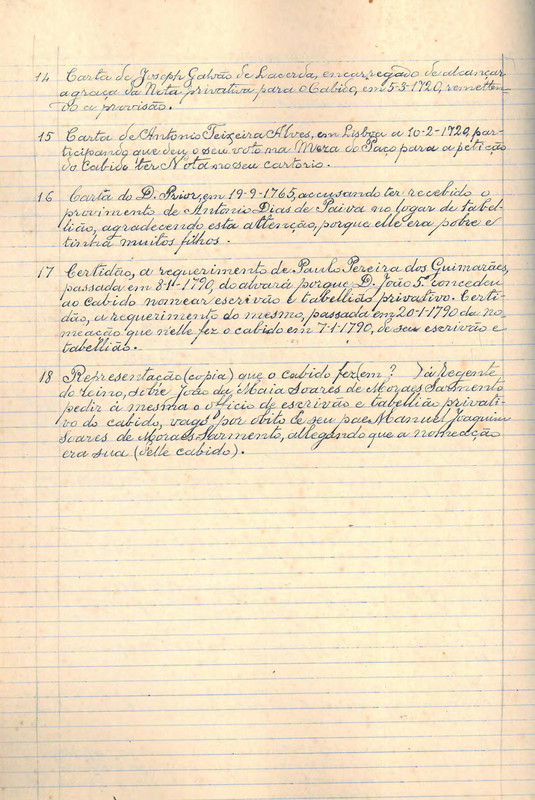 14 Carta de Joseph Galvão de Lacerda, encarregado de alcançar
a graça da Nota privativa para o Cabido, em 5-3-1720, remetten-
do a provisão.
15 Carta de Antonio Teixeira Alves, em Lisboa a 10-2-1720, par-
ticipando que deu o seu voto na Meza do Paço para a petição
do Cabido ter Nota no seu cartorio.
16 Carta do D. Prior, em 19-9-1765, accusando ter recebido o
provimento de Antonio Dias de Paiva no logar de tabel-
lião, agradecendo esta attenção, porque elle era pobre e
tinha muitos filhos.
17 Certidão, a requerimento de Paulo Pereira dos Guimarães,
passada em 8-11-1790, do alvará porque D. João 5º concedeu
ao cabido nomear escrivão e tabellião privativo. Certi-
dão, a requerimento do mesmo, passada em 20-1-1790 da no-
meação que nelle fez o cabido em 7-1-1790, de seu escrivão e
tabellião.
18 Representação (copia) que o cabido fez (em ? ) á regente
do reino, sobre João da Maia Soares de Moraes Sarmento
pedir á mesma o officio de escrivão e tabellião privati-
vo do cabido, vago por obito de seu pae Manuel Joaquim
Soares de Moraes Sarmento, allegando que a nomeação
era sua (delle cabido).